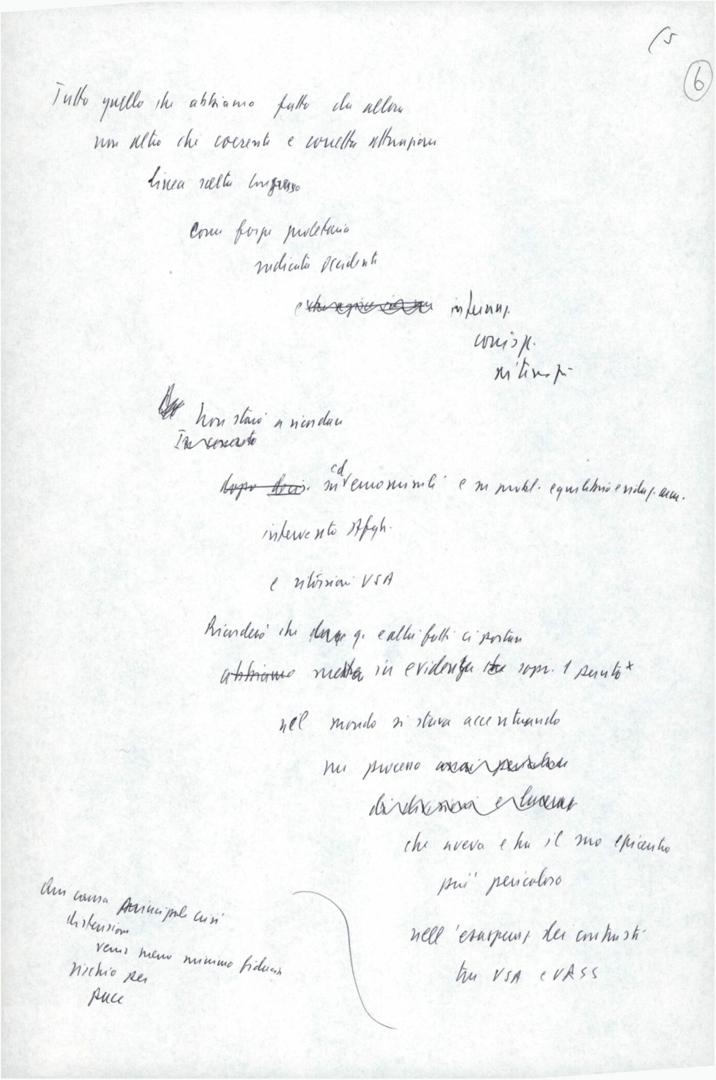 15
6
Tutto quello che abbiamo fatto da allora
non altro che coerente e corretta attuazione
linea scelta Congresso
Come forza proletaria
radicata occidente
internaz.
corrisp.
Non starò a ricordare
cd euromissili e su probl. equilibrio e
intervento Afgh.
e ritorsioni USA
Ricorderò che e altri fatti ci portan
abbiamo in evidenza sopr. 1 punto x
nel mondo si stava accentuando
un processo
che aveva e ha il suo epicentro
più pericoloso
nell'esasperaz. dei contrasti
tra USA e URSS
causa principale crisi
distensione
venir meno minimo fiducia
rischio per
pace